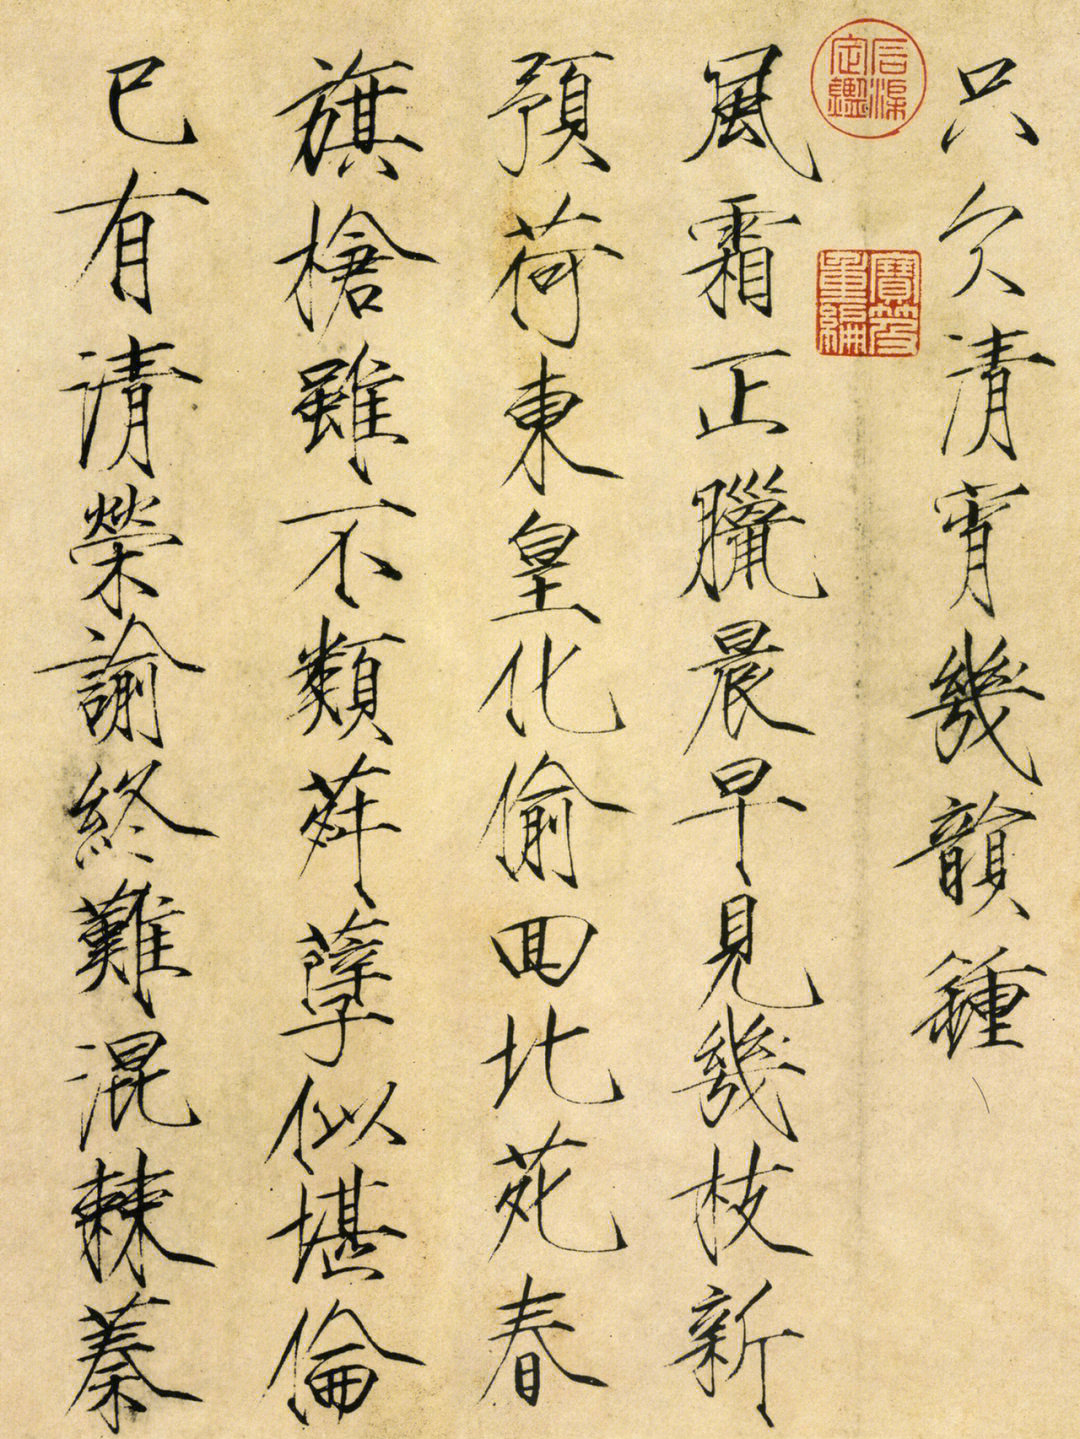 只欠清霄幾韻鍾
石渠定鑑
寶笈重編
風霜正臘晨早見幾枝新
預荷東皇化偷回北苑春
旗槍雖不類荈孽似堪倫
已有請榮諭終難混棘蓁